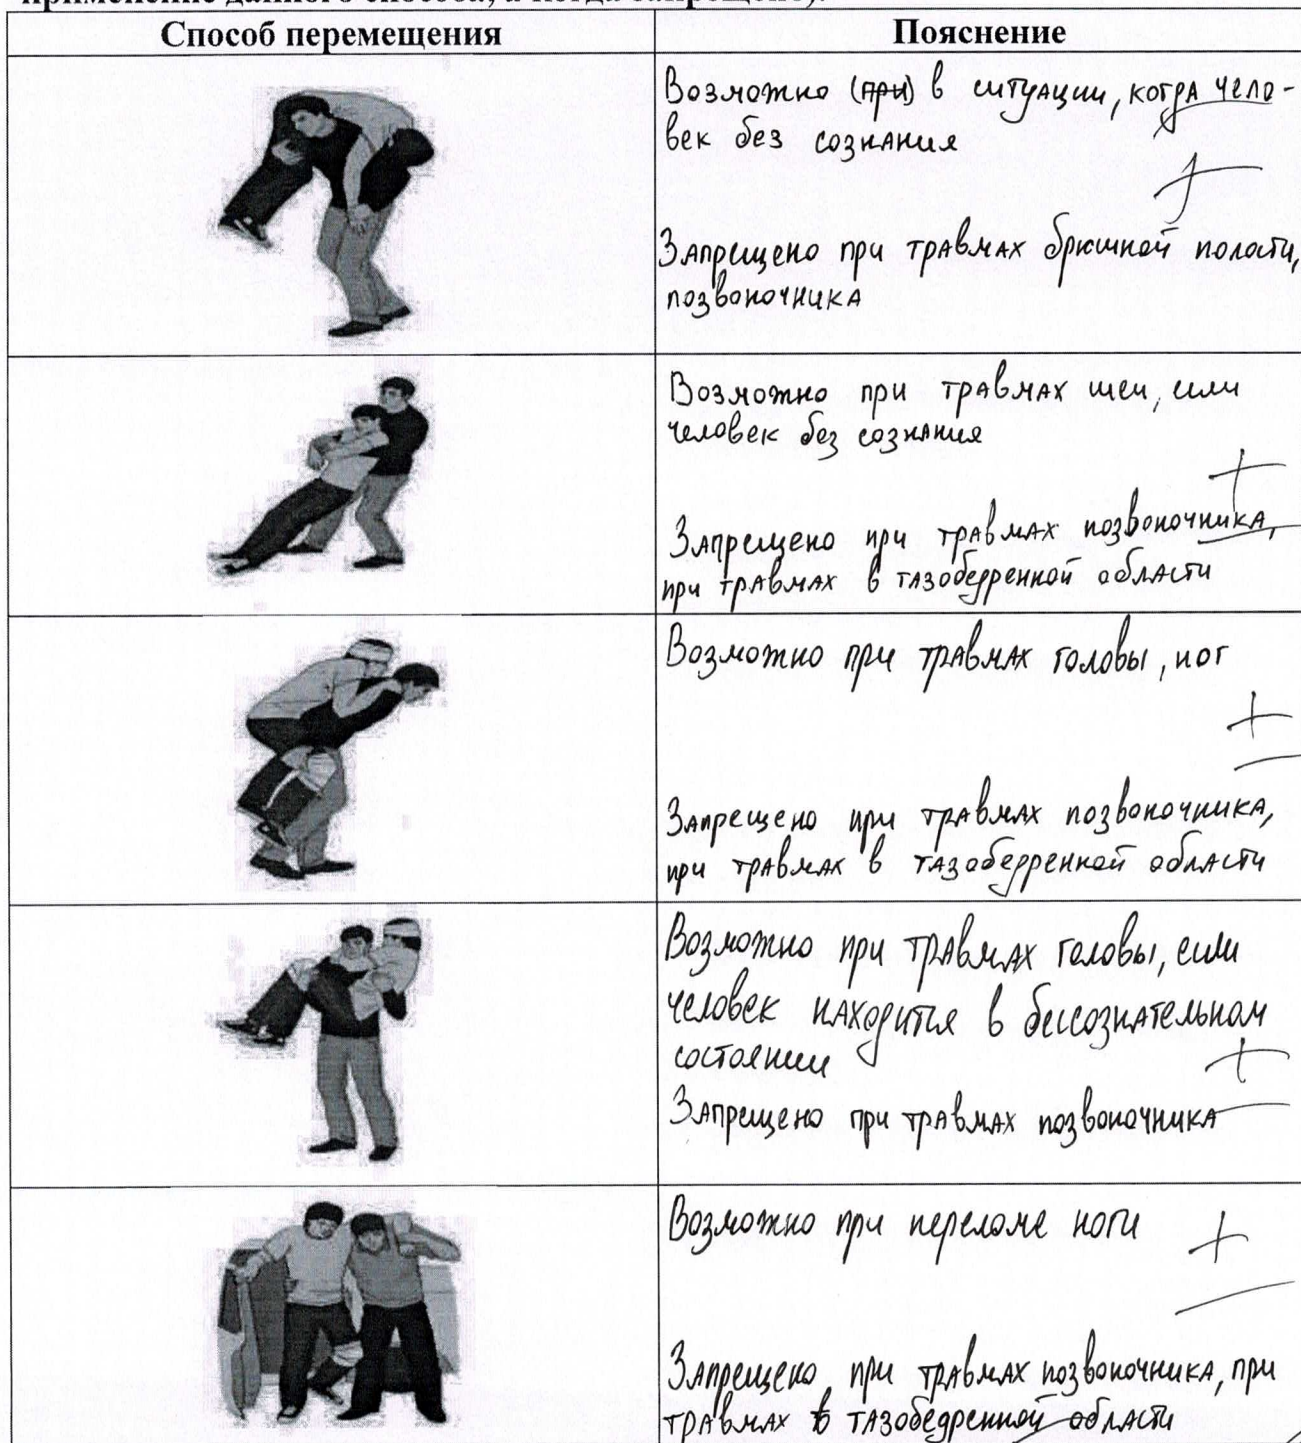 применение данного способа, а когда запрещено).
Способ перемещения
Пояснение
Возможно (при) в ситуации, когда чело-
век без сознания
Запрещено при травмах брюшной полости,
позвоночника
Возможно при травмах шеи, если
человек без сознания
Запрещено при травмах позвоночника,
при травмах в тазобедренной области
Возможно при травмах головы, ног
Запрещено при травмах позвоночника,
при травмах в тазобедренной области
Возможно при травмах головы, если
человек находится в бессознательном
состоянии
Запрещено при травмах позвоночника
Возможно при переломе ноги
Запрещено при травмах позвоночника, при
травмах в тазобедренной области